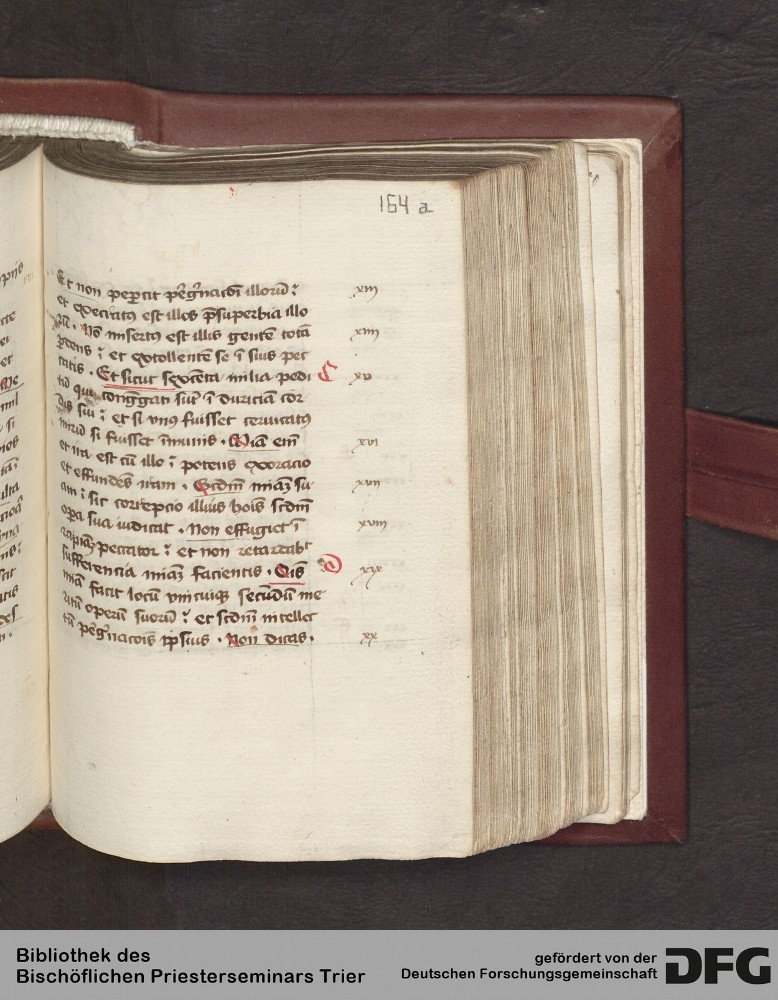 164 a
Et non pepercit pegnacōi illorū : xiii
et execratus est illos psuperbia illo
rū . Nō misertus est illis gentē totā xiiii
pdens : et extollentē se ī suis pec
catis . Et sicut sexcēta milia pedi C xv
tū qui congregati sūt ī duriciā cor
dis sui : et si vnus fuisset ceruicatus
mirū si fuisset īmunis . Miā eīm xvi
et ira est cū illo : potens exoracio
et effundēs iram . Scdm miaz su xvii
am : sic correpcio illius hoīs scdm
opa sua iudicat . Non effugiet ī xviii
rapiaz peccator : et non retardabt
sufferencia miaz facientis . Oīs D xix
miā faciet locū vnicuiqz secūdū me
ritū operū suorū : et scdm intellec
tū pegnacōis ipsius . Non dicas . xx
Bibliothek des
Bischöflichen Priesterseminars Trier
gefördert von der
Deutschen Forschungsgemeinschaft
DFG